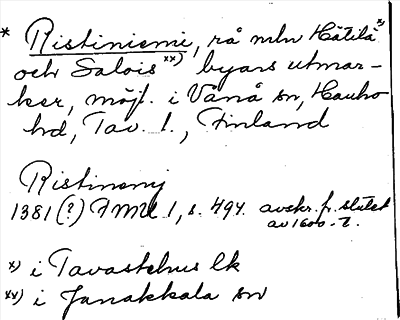 * Ristiniemi, rå mln Hätilä x)
och Salois xx) byars utmar-
ker, möjl. i Vånå sn, Hauho
hd, Tav. l., Finland
Ristinemj
1381 (?) FMU 1, s. 494. avskr. fr. slutet
av 1600-t.
x) i Tavastehus lk
xx) i Janakkala sn